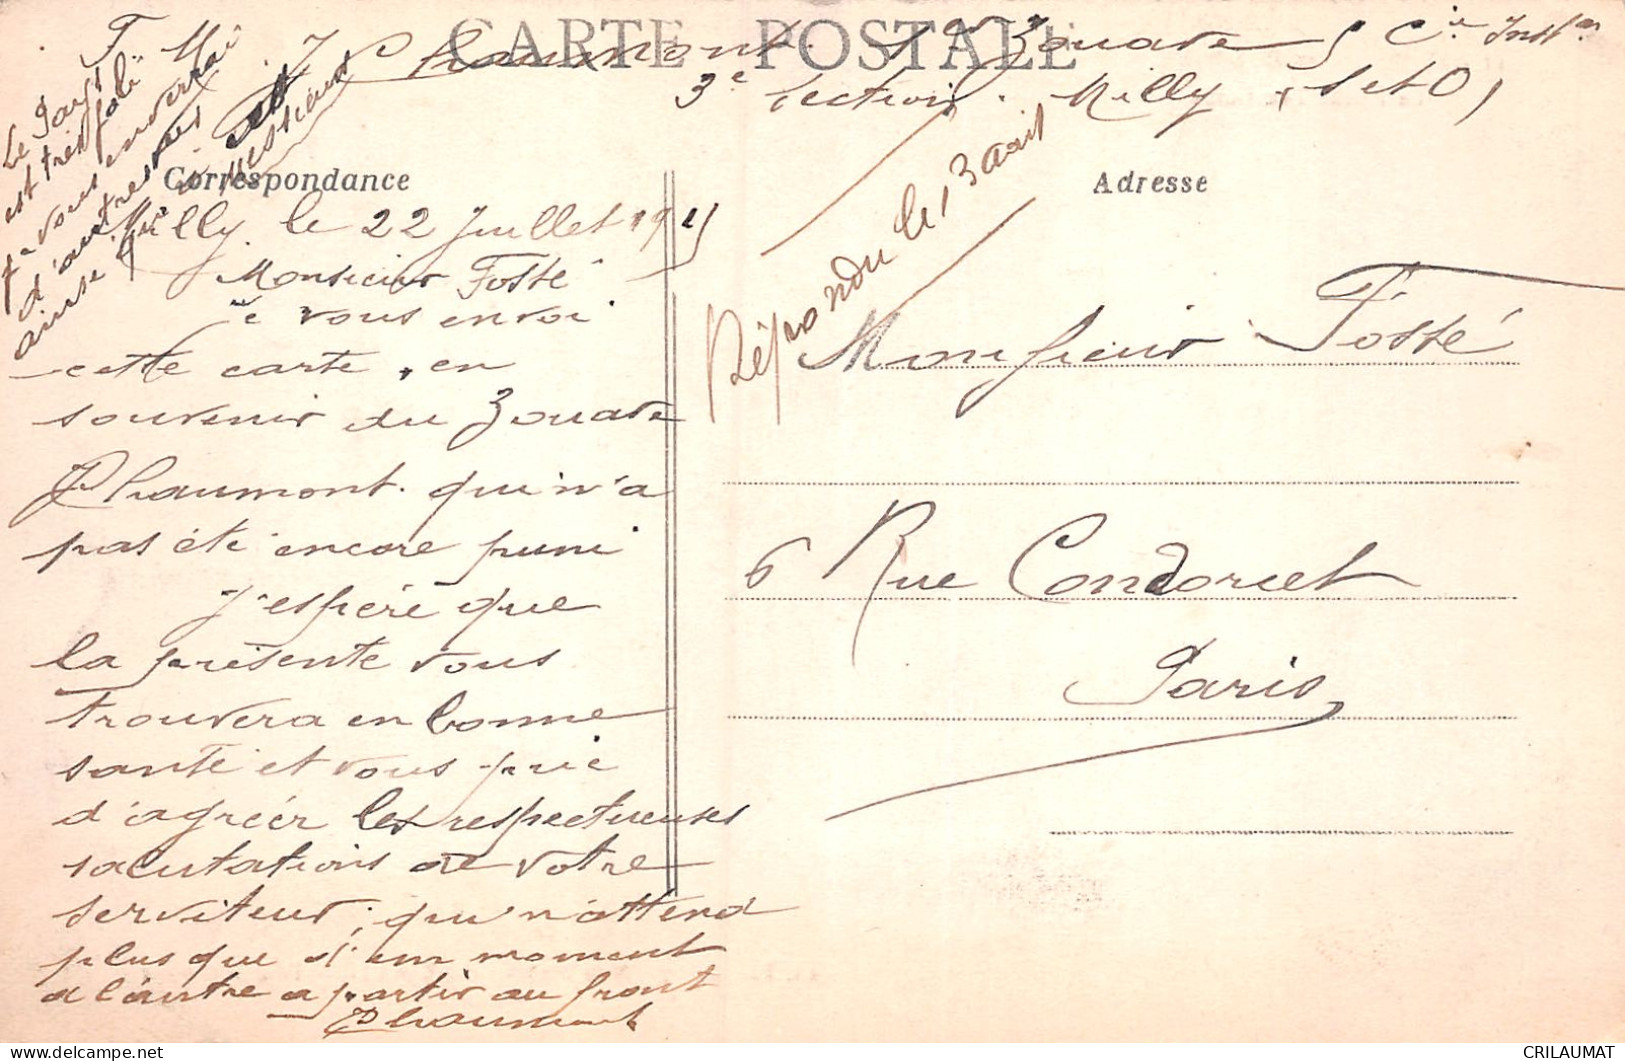 CARTE POSTALE
F. M. J Chaumont. 1er Zouave 5 Cie Inston
3e Section. Milly (S et O)
Le Pays
est très joli
je vous enverrai
d'autres vues
ainsi qu'à
messieurs
Correspondance
Adresse
Répondu le 13 août
Milly. le 22 Juillet 1915
Monsieur Fossé
Je vous envoi
cette carte, en
souvenir du Zouave
Chaumont. qui n'a
pas été encore puni
J'espère que
la présente vous
trouvera en bonne
santé et vous prie
d'agréer les respectueuses
salutations de votre
serviteur, qui n'attend
plus que d'un moment
a l'autre a partir au front
Chaumont
Monsieur Fossé
6 Rue Condorcet
Paris
CRILAUMAT